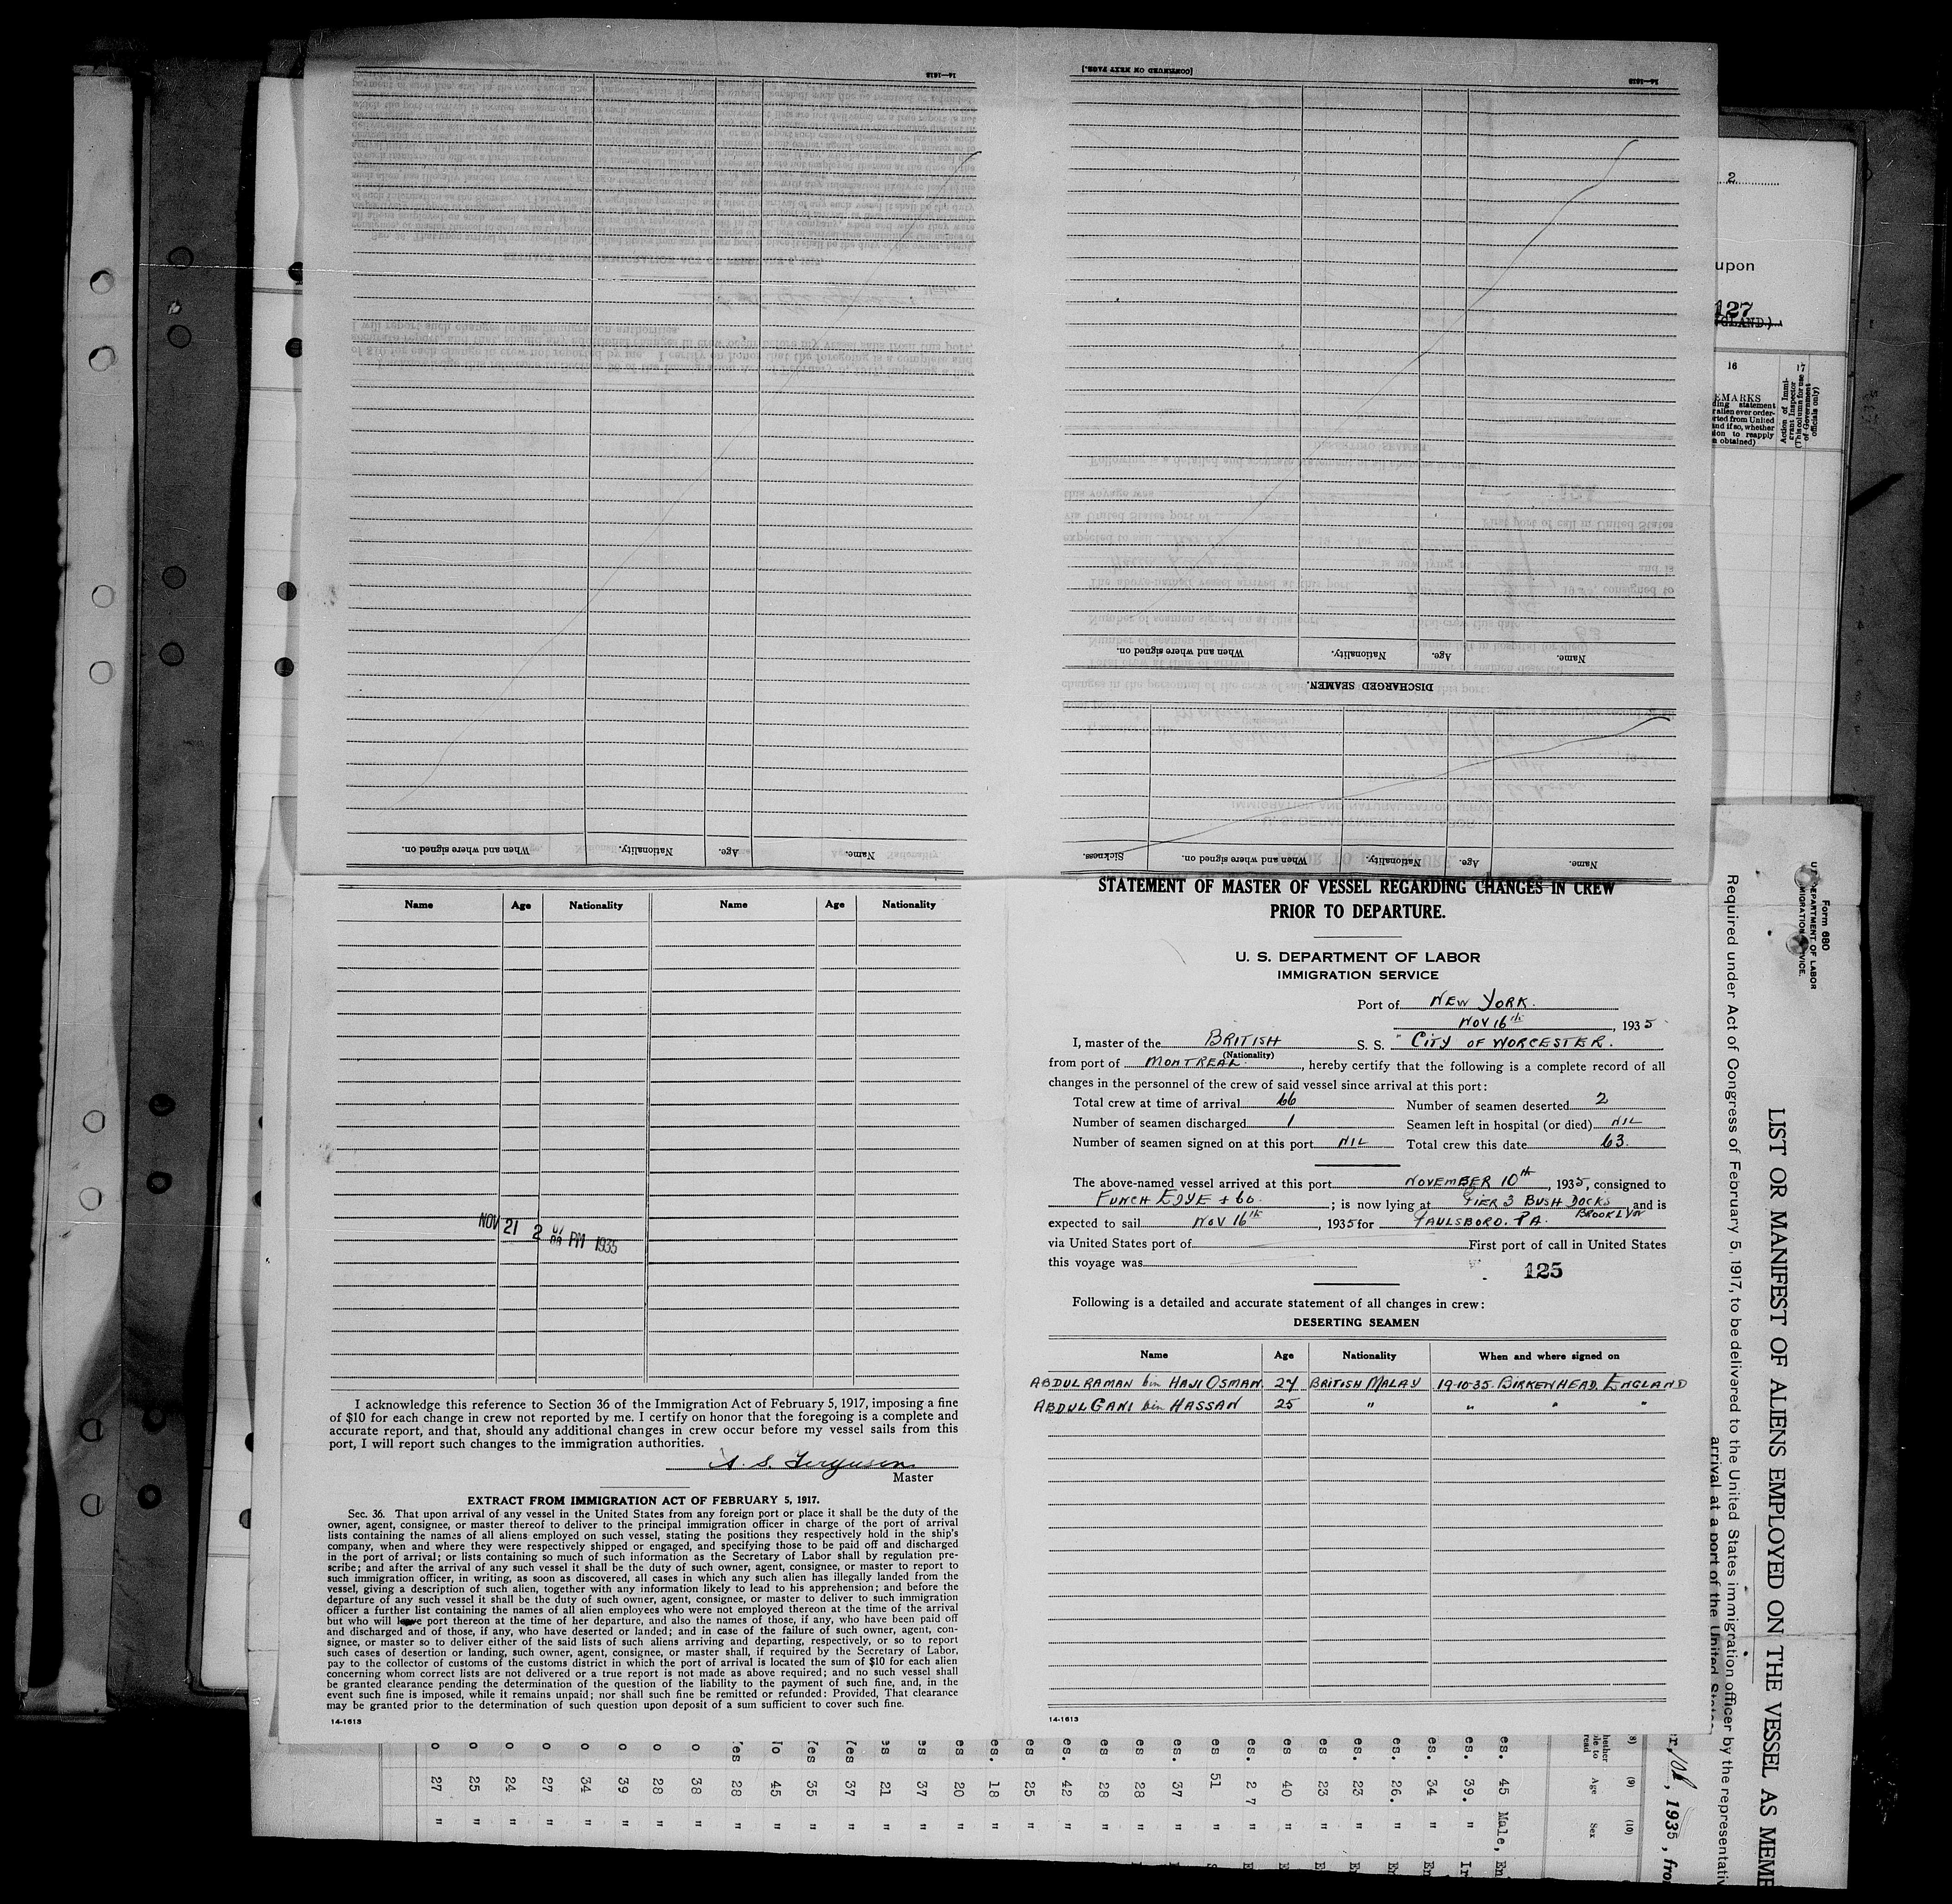 [CONTINUED ON NEXT PAGE.]
14—1613
14—1613
Name.
Age.
Nationality.
When and where signed on.
DISCHARGED SEAMEN.
Name.
Age.
Nationality.
When and where signed on.
Name.
Age.
Nationality.
When and where signed on.
Sickness.
2
upon
127
GLAND)
16
17
EMARKS
ding statement
r alien ever order-
rted from United
and if so, whether
sion to reapply
n obtained)
Action of Immi-
grant Inspector
(This column for use
of Government
officials only)
Name Age Nationality Name Age Nationality
NOV 21 2 PM 1935
I acknowledge this reference to Section 36 of the Immigration Act of February 5, 1917, imposing a fine
of $10 for each change in crew not reported by me. I certify on honor that the foregoing is a complete and
accurate report, and that, should any additional changes in crew occur before my vessel sails from this
port, I will report such changes to the immigration authorities.
A. S. Ferguson
Master
EXTRACT FROM IMMIGRATION ACT OF FEBRUARY 5, 1917.
Sec. 36. That upon arrival of any vessel in the United States from any foreign port or place it shall be the duty of the
owner, agent, consignee, or master thereof to deliver to the principal immigration officer in charge of the port of arrival
lists containing the names of all aliens employed on such vessel, stating the positions they respectively hold in the ship's
company, when and where they were respectively shipped or engaged, and specifying those to be paid off and discharged
in the port of arrival; or lists containing so much of such information as the Secretary of Labor shall by regulation pre-
scribe; and after the arrival of any such vessel it shall be the duty of such owner, agent, consignee, or master to report to
such immigration officer, in writing, as soon as discovered, all cases in which any such alien has illegally landed from the
vessel, giving a description of such alien, together with any information likely to lead to his apprehension; and before the
departure of any such vessel it shall be the duty of such owner, agent, consignee, or master to deliver to such immigration
officer a further list containing the names of all alien employees who were not employed thereon at the time of the arrival
but who will leave port thereon at the time of her departure, and also the names of those, if any, who have been paid off
and discharged and of those, if any, who have deserted or landed; and in case of the failure of such owner, agent, con-
signee, or master so to deliver either of the said lists of such aliens arriving and departing, respectively, or so to report
such cases of desertion or landing, such owner, agent, consignee, or master shall, if required by the Secretary of Labor,
pay to the collector of customs of the customs district in which the port of arrival is located the sum of $10 for each alien
concerning whom correct lists are not delivered or a true report is not made as above required; and no such vessel shall
be granted clearance pending the determination of the question of the liability to the payment of such fine, and, in the
event such fine is imposed, while it remains unpaid; nor shall such fine be remitted or refunded: Provided, That clearance
may be granted prior to the determination of such question upon deposit of a sum sufficient to cover such fine.
14-1613
STATEMENT OF MASTER OF VESSEL REGARDING CHANGES IN CREW
PRIOR TO DEPARTURE.
U. S. DEPARTMENT OF LABOR
IMMIGRATION SERVICE
Port of NEW YORK.
NOV 16th, 1935
I, master of the BRITISH S. S. "CITY OF WORCESTER.
(Nationality)
from port of MONTREAL., hereby certify that the following is a complete record of all
changes in the personnel of the crew of said vessel since arrival at this port:
Total crew at time of arrival 66 Number of seamen deserted 2
Number of seamen discharged 1 Seamen left in hospital (or died) NIL
Number of seamen signed on at this port NIL Total crew this date 63.
The above-named vessel arrived at this port NOVEMBER 10th, 1935, consigned to
FUNCH EDYE + Co.; is now lying at PIER 3 BUSH DOCKS BROOKLYN and is
expected to sail NOV 16th, 1935 for PAULSBORO. PA.
via United States port of First port of call in United States
this voyage was
125
Following is a detailed and accurate statement of all changes in crew:
DESERTING SEAMEN
Name Age Nationality When and where signed on
ABDULRAMAN bin HAJI OSMAN 24 BRITISH MALAY 19-10-35. BIRKENHEAD. ENGLAND
ABDUL GANI bin HASSAN 25 " " " "
14-1613
Form 680
U. S. DEPARTMENT OF LABOR
IMMIGRATION SERVICE.
LIST OR MANIFEST OF ALIENS EMPLOYED ON THE VESSEL AS MEMB
Required under Act of Congress of February 5, 1917, to be delivered to the United States immigration officer by the representativ
arrival at a port of the United States
, 1935, fro
(8) (9) (10)
hether
le to
read
Age
Sex
es. 45 Male, En
es. 39. " Ir
es. 34 " E
es. 26. " E
es 23 " E
es 23 " E
es. 40 " E
es. 2 7 " E
es 51 "
es. 37 "
es 28 "
es. 28 "
es. 42 "
es 25 "
es. 18 "
es 20 "
es 37 "
es 21 "
Yes 37 "
Yes 35 "
No 45 "
Yes 28 "
o 38 "
o 28 "
o 39 "
o 34 "
o 27 "
o 24 "
o 25 "
o 27 "